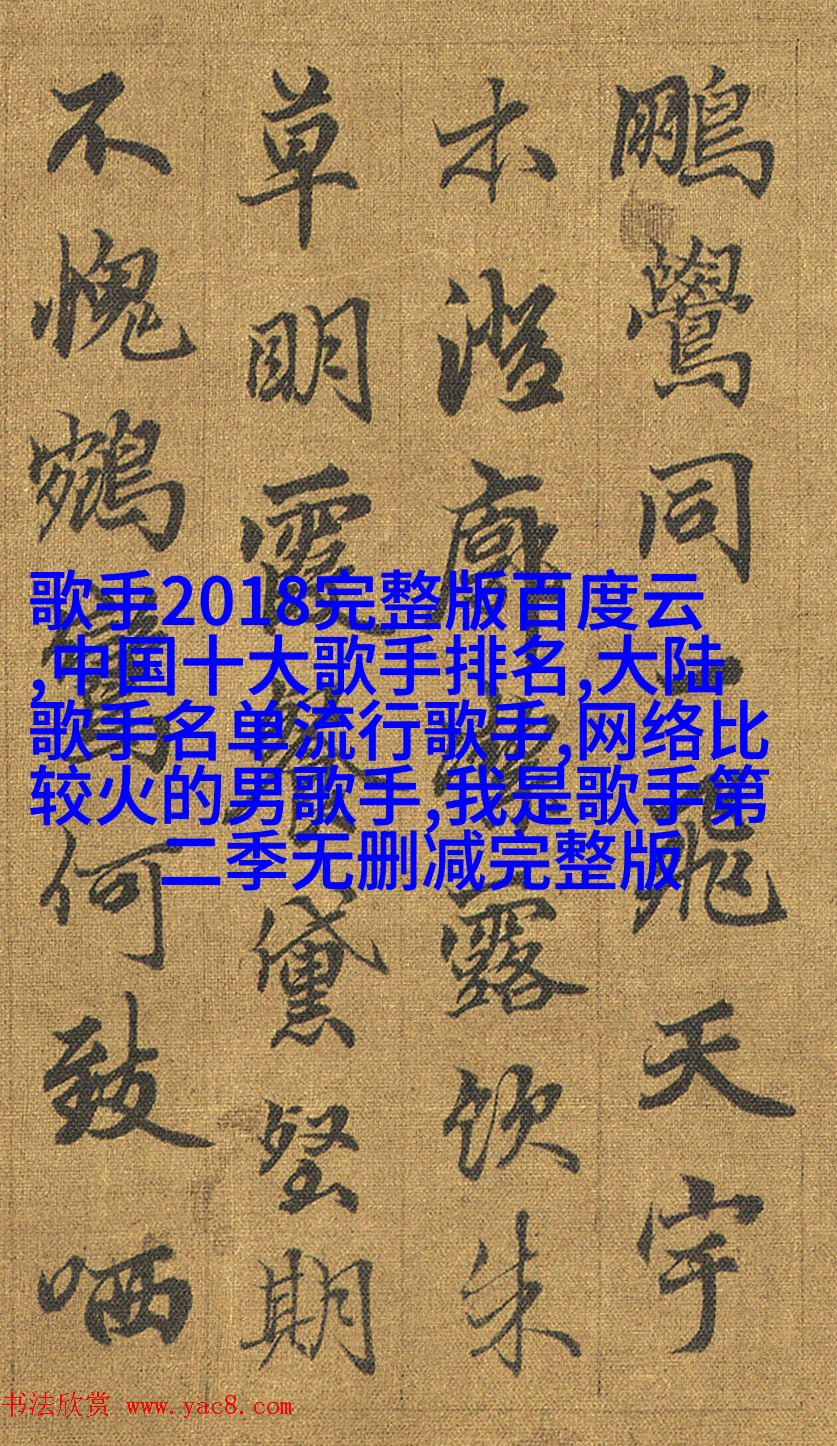 鵬鷽同一飛天宇
木澄廓露饮朱
草明霞餐黛期
不愧鶴何致哂
歌手2018完整版百度云
,中国十大歌手排名,大陆
歌手名单流行歌手,网络比
较火的男歌手,我是歌手第
二季无删减完整版
书法欣赏 www.yac8.com